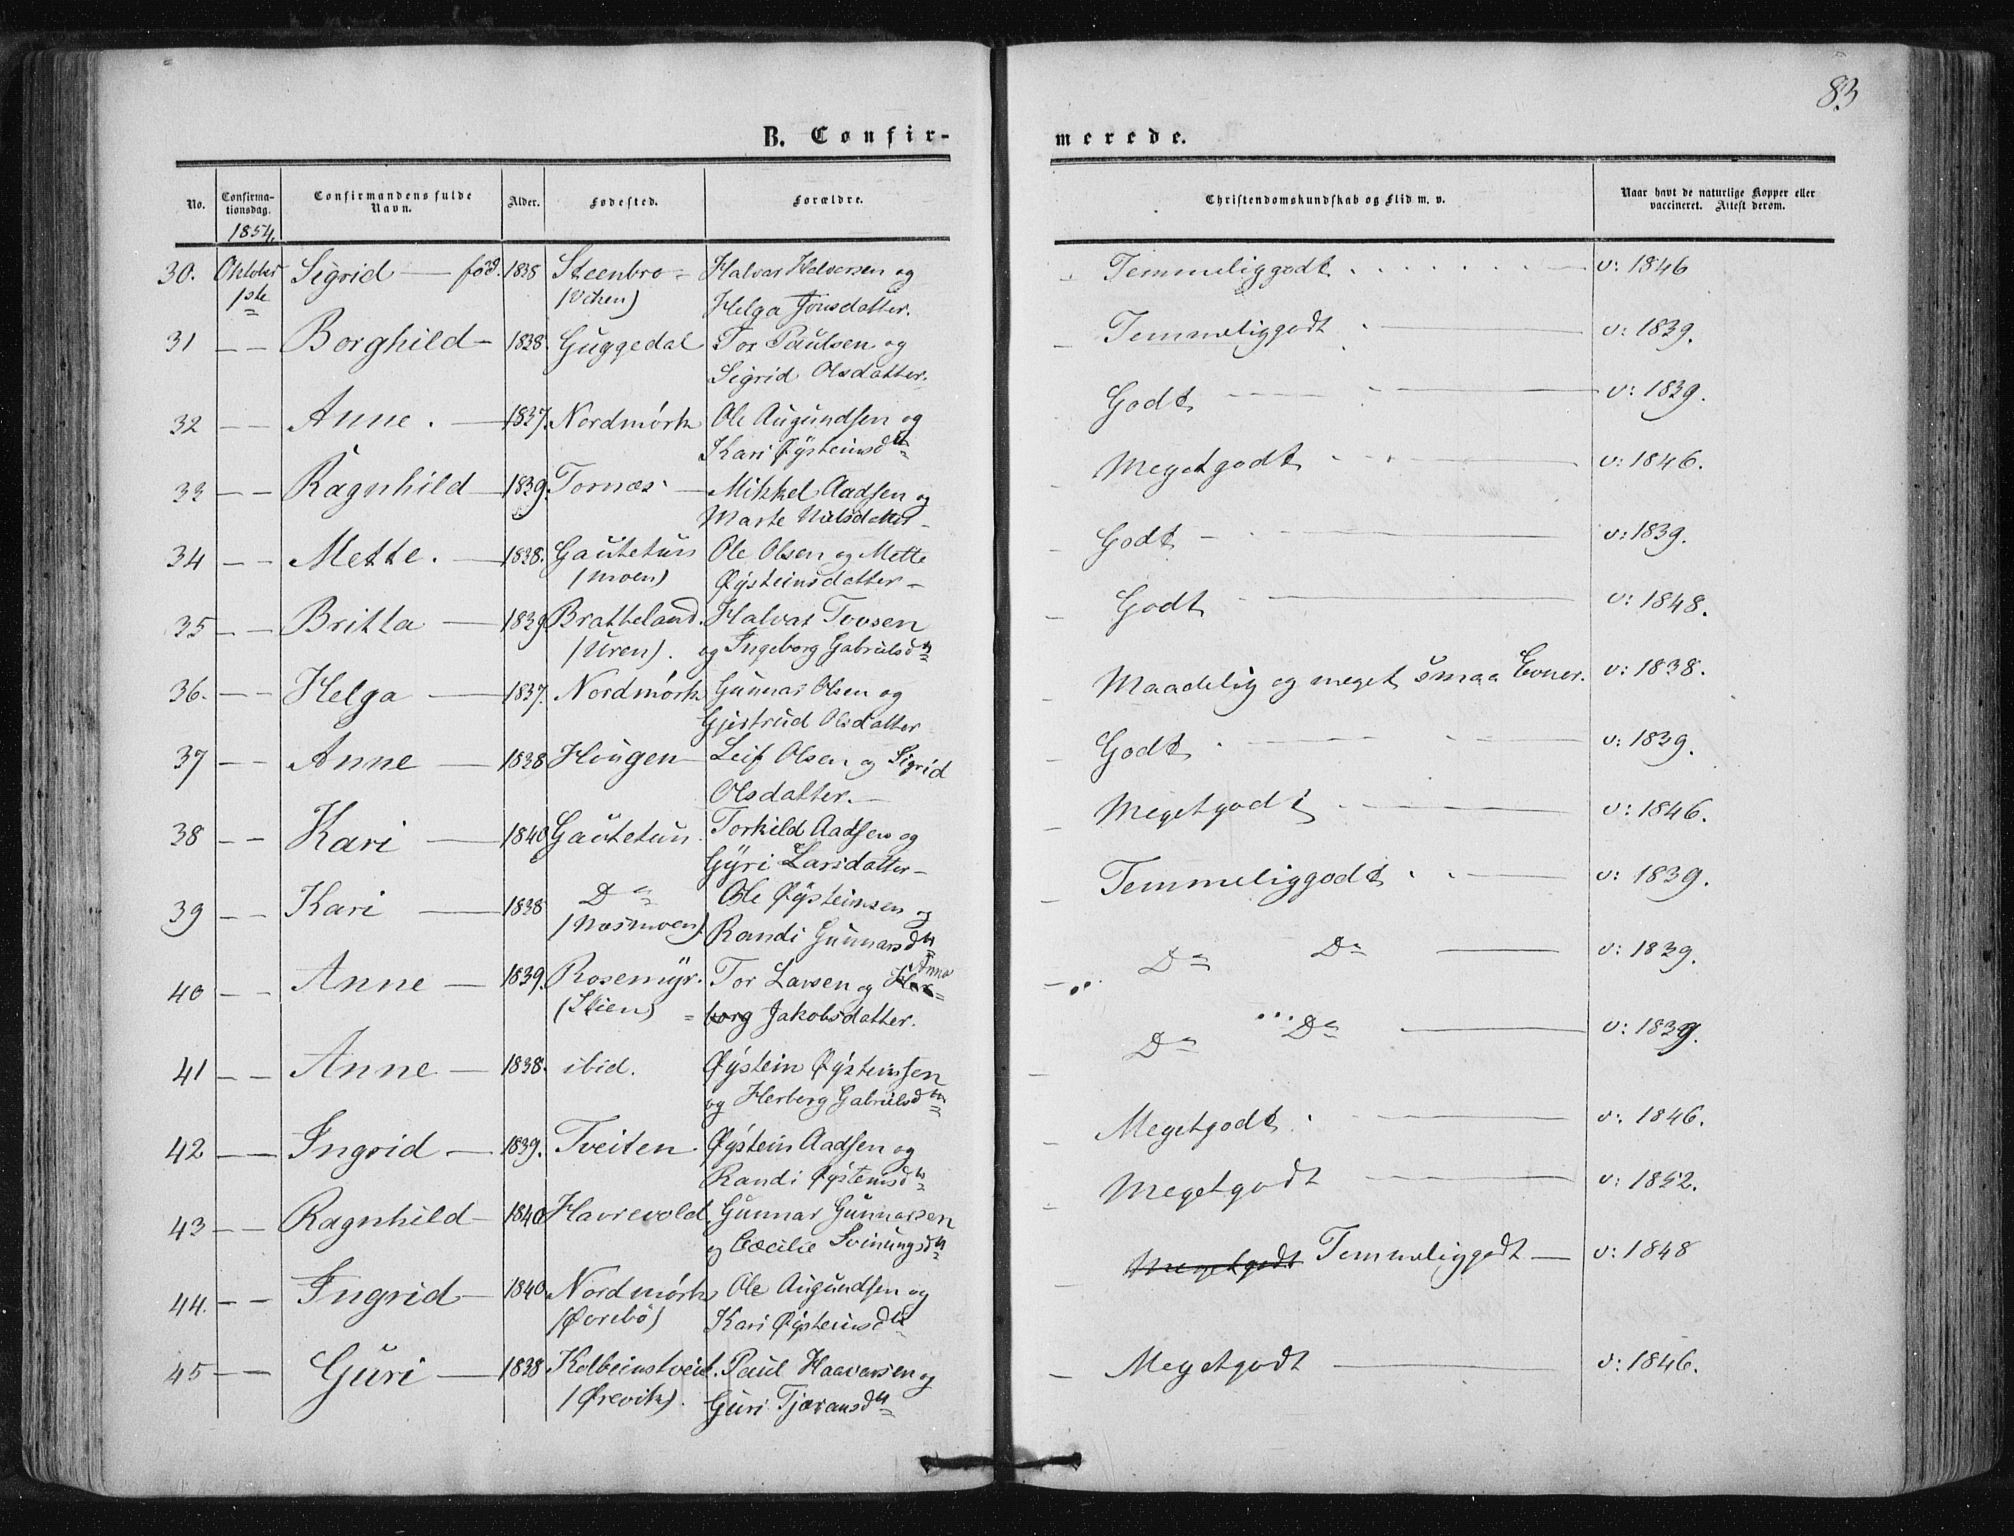 83
B. Confirmerede.
No. Confirmationsdag. Confirmandens fulde Navn. Alder. Fødested. Forældre. Christendomskundskab og Flid m. v. Naar havt de naturlige Kopper eller vaccineret. Attest derom.
1854.
30. Oktober Sigrid — fød. 1838 Steenbro= Halvar Halvorsen og Temmeliggodt v: 1846
1ste Helga Jonsdatter.
31 — — Borghild — 1838. Guggedal Tor Paulsen og Temmeliggodt — v: 1839.
Sigrid Olsdatter.
32 — — Anne. — 1837. Nordmørk Ole Augundsen og Godt — v: 1839.
Kari Øÿsteinsdtr
33 — — Ragnhild — 1839. Tornæs — Mikkel Aadsen og Megetgodt v: 1846.
Marte Nielsdatter
34 — — Mette. — 1838. Gautetun Ole Olsen og Mette Godt — v: 1839.
(Moen) Øÿsteinsdatter —
35 — — Britta — 1839 Bratteland. Halvar Tovsen Godt — v: 1848.
(Uren). og Ingeborg Gabrielsdtr
36. — — Helga — 1837. Nordmørk Gunnar Olsen og Maadelig og meget smaa Evner. v: 1838.
Gjertrud Olsdatter
37 — — Anne — 1838 Hougen — Leif Olsen og Sigrid Godt — v: 1839.
Olsdatter. —
38 — — Kari — 1840 Gautetun. Torkild Aadsen og Megetgodt — v: 1846.
Gÿri Larsdatter —
39 — — Kari — 1838 Do Ole Øÿsteinsen og Temmeliggodt — v: 1839.
(Næsmoen). Randi Gunnarsdtr
40 — — Anne — 1839. Rosemÿr. Tor Larsen og Her= Anna Do Do — v: 1839.
(Stien) = borg Jakobsdatter.
41 — — Anne — 1838. ibid. Øÿstein Øÿsteinsen Do Do — v: 1839.
og Herborg Gabrielsdtr
42 — — Ingrid — 1839. Tveiten. Øÿstein Aadsen og Megetgodt. — v: 1846.
Randi Øÿsteinsdtr
43 — — Ragnhild — 1840 Havrevold. Gunnar Gunnarsen Megetgodt — v: 1852.
og Cæcilie Svinungsdtr
44. — — Ingrid — 1840. Nordmørk Ole Augundsen og Megetgodt Temmeliggodt — v: 1848
(Øvrebø) Kari Øÿsteinsdtr
45 — — Guri — 1838 Kolbeinstveit. Paul Haavarsen og Megetgodt — v: 1846.
(Ørevik). Guri Tjæransdtr